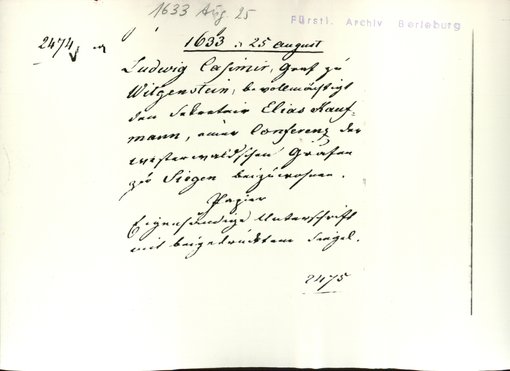 1633 Aug. 25
Fürstl. Archiv Berleburg
2474
1633 25 August
Ludwig Casimir, Graf zu
Witgenstein, bevollmächtigt
den Sekretair Elias Kauf-
mann, einer Conferenz der
westerwaldschen Grafen
zu Siegen beizuwohnen.
Papier
Eigenhändige Unterschrift
mit beigedrücktem Siegel.
2475